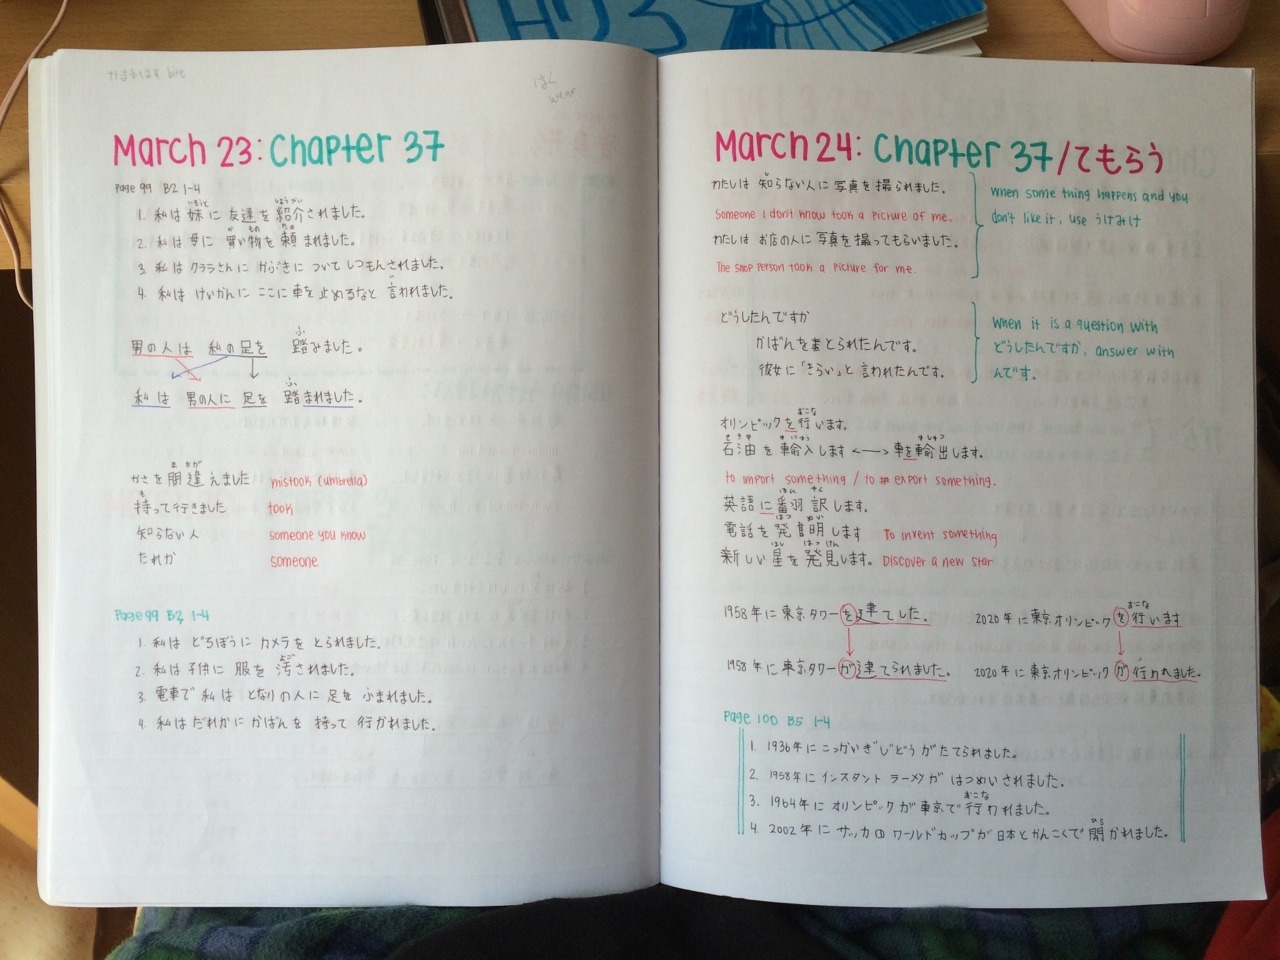 かまれます bite
はく
wear
March 23: Chapter 37
Page 99 B2 1-4
1. 私は妹に友達を紹介されました。
2. 私は母に買い物を頼まれました。
3 私はクララさんにかぶきについてしつもんされました。
4. 私はけいかんにここに車を止めるなと言われました。
男の人は 私の足を 踏みました。
私は 男の人に 足を 踏まれました。
かさを間違えました mistook (umbrella)
持って行きました took
知らない人 someone you know
だれか someone
Page 99 B2 1-4
1. 私はどろぼうにカメラをとられました。
2. 私は子供に服を汚されました。
3. 電車で私はとなりの人に足をふまれました。
4. 私はだれかにかばんを持って行かれました。
March 24: Chapter 37/てもらう
わたしは知らない人に写真を撮られました。
Someone I don't know took a picture of me.
わたしはお店の人に写真を撮ってもらいました。
The shop person took a picture for me.
when something happens and you
don't like it, use うけみけ
どうしたんですか
かばんをとられたんです。
彼女に「きらい」と言われたんです。
When it is a question with
どうしたんですか, answer with
んです.
オリンピックを行います。
石油を輸入します ←→ 車を輸出します。
to import something / to export something.
英語に翻訳します。
電話を発明します To invent something
新しい星を発見します。 Discover a new star
1958年に東京タワーを建てした。 2020年に東京オリンピックを行います
1958年に東京タワーが建てられました。 2020年に東京オリンピックが行われました。
Page 100 B5 1-4
1. 1936年にこっかいぎじどうがたてられました。
2. 1958年にインスタントラーメンがはつめいされました。
3. 1964年にオリンピックが東京で行われました。
4. 2002年にサッカのワールドカップが日本とかんこくで開かれました。